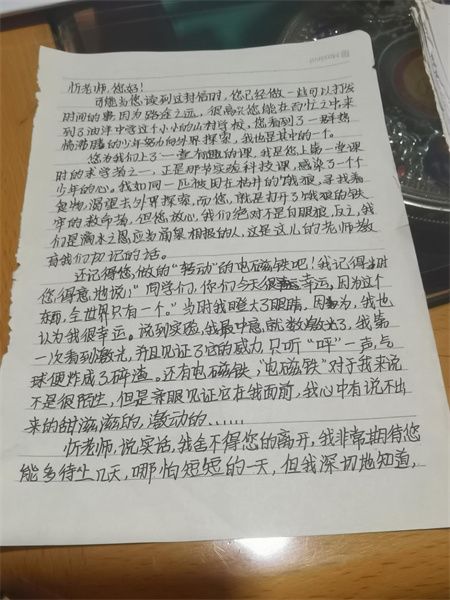 忻老师,您好!
可能当您读到这封信时,您已经做一些可以打发
时间的事,因为路途之远。很高兴您能在百忙之中来
到油洋中学这个小小的山村学校,您看到了一群热
情沸腾的少年努力向外界探索,我也是其中的一个。
您为我们上了一堂有趣的课,我是您上第一堂课
时的求学者之一,正是那节实验科技课,感染了一个个
少年的心。我如同一匹被困在枯井的饿狼,寻找着
食物,渴望去外界探索,而您,就是打开了饿狼的铁
牢的救命人。但您放心,我们绝对不是白眼狼,反之,我
们是滴水之恩应当涌泉相报的人,这是这儿的老师教
育我们切记的话。
还记得您做的“转动”的电磁铁吧!我记得当时
您得意地说:“同学们,你们今天很幸运,因为这个
东西,全世界只有一个。”当时我瞪大了眼睛,因为,我也
认为我很幸运。说到实验,我最中意就数激光了,我第
一次看到激光,并且见证了它的威力,只听“呯”一声,气
球便炸成了碎渣。还有电磁铁,“电磁铁”对于我来说
不是很陌生,但是亲眼见证它在我面前,我心中有说不出
来的甜滋滋的,激动的......
忻老师,说实话,我舍不得您的离开,我非常期待您
能多待上几天,哪怕短短的一天,但我深切地知道,